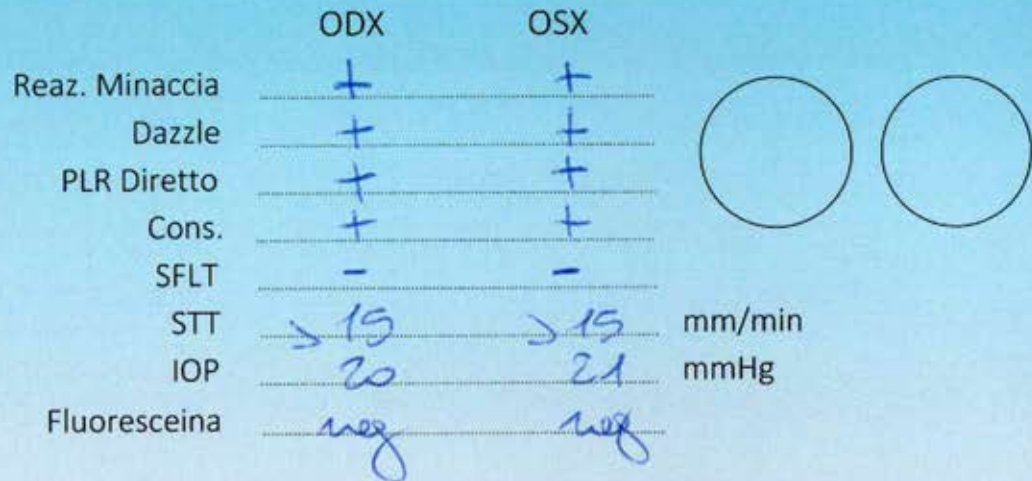 ODX OSX
Reaz. Minaccia + +
Dazzle + +
PLR Diretto + +
Cons. + +
SFLT - -
STT >15 >15 mm/min
IOP 20 21 mmHg
Fluoresceina neg neg